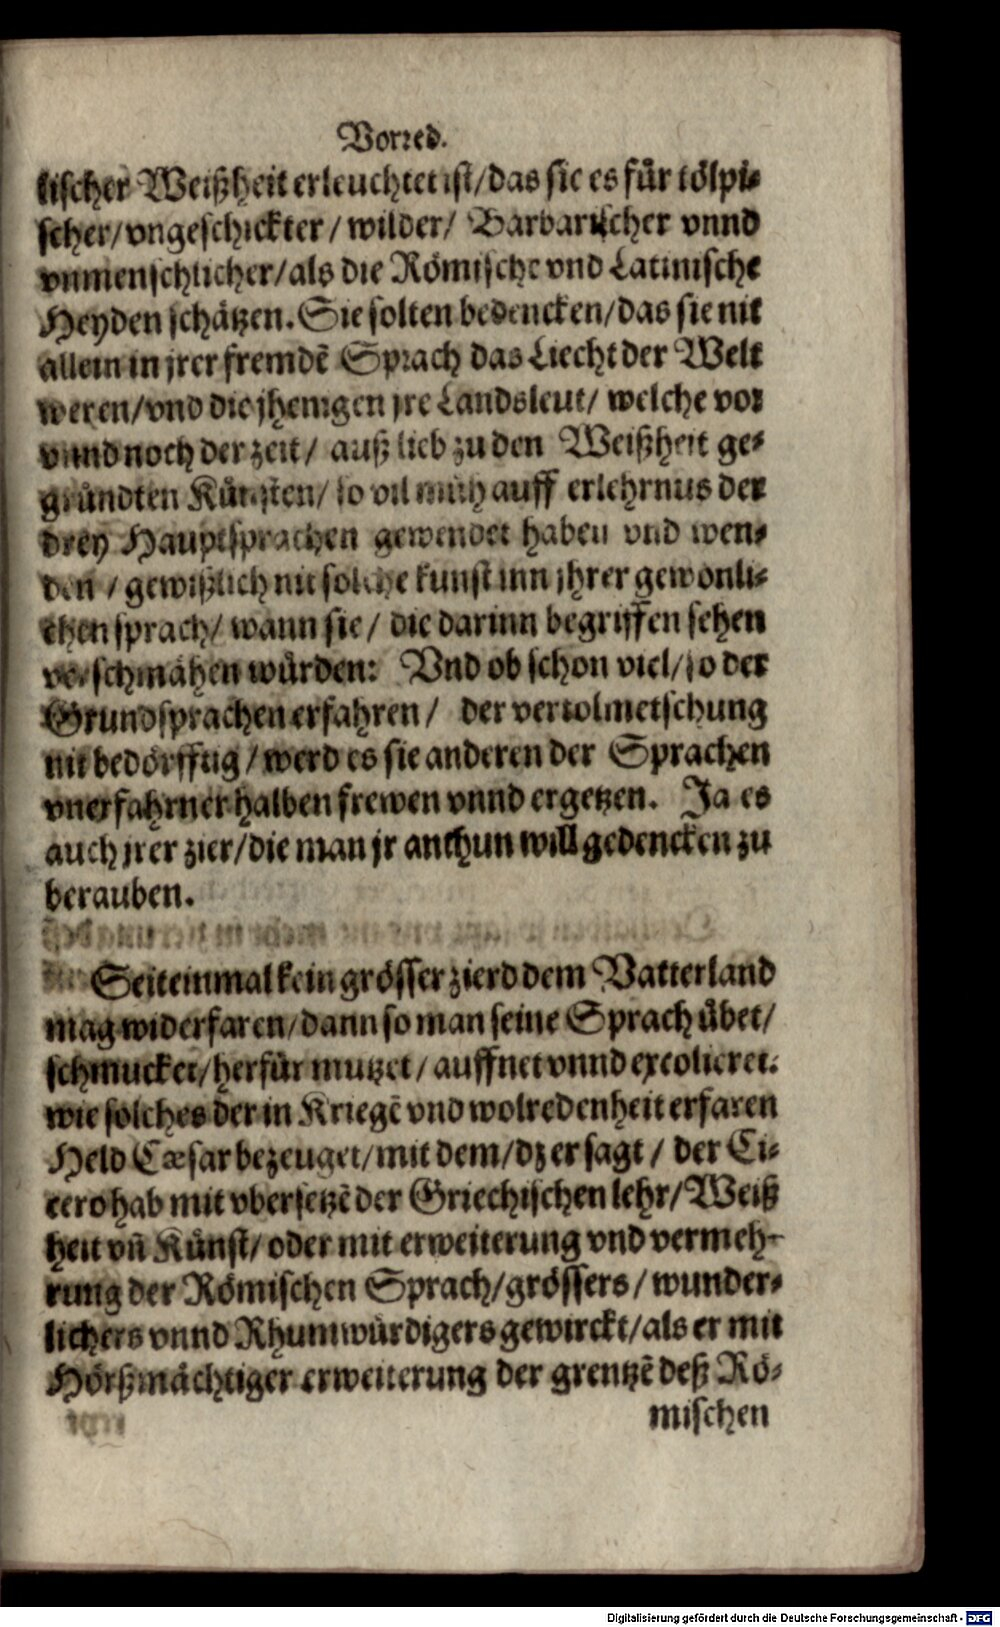 Vorred.
lischer Weißheit erleuchtet ist/das sie es für tölpi-
scher/vngeschickter/wilder/ Barbarischer vnnd
vnmenschlicher/als die Römische vnd Latinische
Heyden schätzen. Sie solten bedencken/das sie nit
allein in jrer fremdē Sprach das Liecht der Welt
weren/vnd die jhenigen jre Landsleut/ welche vor
vnnd noch der zeit/ auß lieb zu den Weißheit ge-
gründten Künsten/ so vil müh auff erlehrnus der
drey Hauptsprachen gewendet haben vnd wen-
den/gewißlich nit solche kunst inn jhrer gewonli-
chen sprach/ wann sie/ die darinn begriffen sehen
verschmähen würden: Vnd ob schon viel/so der
Grundsprachen erfahren/ der vertolmetschung
nit bedörfftig/werd es sie anderen der Sprachen
vnerfahrner halben frewen vnnd ergetzen. Ja es
auch jrer zier/die man jr anthun will gedencken zu
berauben.
Seiteinmal kein grösser zierd dem Vatterland
mag widerfaren/dann so man seine Sprach übet/
schmucket/herfür mutzet/auffnet vnnd excolieret:
wie solches der in Kriegē vnd wolredenheit erfaren
Held Cæsar bezeuget/mit dem/dz er sagt/ der Ci-
cero hab mit vbersetzē der Griechischen lehr/Weiß
heit vñ Künst/oder mit erweiterung vnd vermeh-
rung der Römischen Sprach/grössers/wunder-
lichers vnnd Rhumwürdigers gewirckt/als er mit
Hörßmächtiger erweiterung der grentzē deß Rö-
mischen
Digitalisierung gefördert durch die Deutsche Forschungsgemeinschaft - DFG